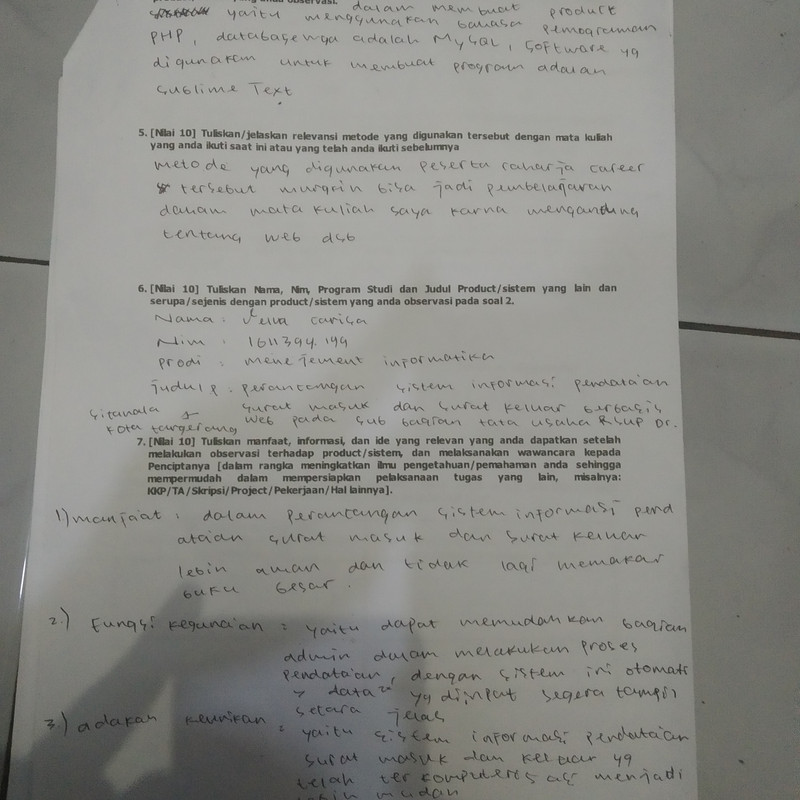 anda observasi.
yaitu dalam membuat product
menggunakan bahasa pemograman
PHP, databasenya adalah MySQL, software yg
digunakan untuk membuat program adalah
Sublime Text
5. [Nilai 10] Tuliskan/jelaskan relevansi metode yang digunakan tersebut dengan mata kuliah
yang anda ikuti saat ini atau yang telah anda ikuti sebelumnya
metode yang digunakan peserta raharja career
tersebut mungkin bisa jadi pembelajaran
dalam mata kuliah saya karna mengandung
tentang web dsb
6. [Nilai 10] Tuliskan Nama, Nim, Program Studi dan Judul Product/sistem yang lain dan
serupa/sejenis dengan product/sistem yang anda observasi pada soal 2.
Nama :
Nim : 1611394199
prodi : menejement informatika
judul p. perantangan sistem informasi pendataian
surat masuk dan surat keluar berbasis
web pada sub bagian tata usaha RSUP Dr.
sitanala
kota tangerang
7. [Nilai 10] Tuliskan manfaat, informasi, dan ide yang relevan yang anda dapatkan setelah
melakukan observasi terhadap product/sistem, dan melaksanakan wawancara kepada
Penciptanya [dalam rangka meningkatkan ilmu pengetahuan/pemahaman anda sehingga
mempermudah dalam mempersiapkan pelaksanaan tugas yang lain, misalnya:
KKP/TA/Skripsi/Project/Pekerjaan/Hal lainnya].
1) manfaat : dalam perantangan sistem informasi pend
ataian surat masuk dan surat keluar
lebih aman dan tidak lagi memakai
buku besar.
2.) Fungsi kegunaian : yaitu dapat memudahkan bagian
admin dalam melakukan proses
pendataian, dengan sistem ini otomatis
data² yg diinput segera tampil
secara jelas
3.) adakah keunikan : yaitu sistem informasi pendataian
surat masuk dan keluar yg
telah terkomputerisasi menjadi
lebih mudah